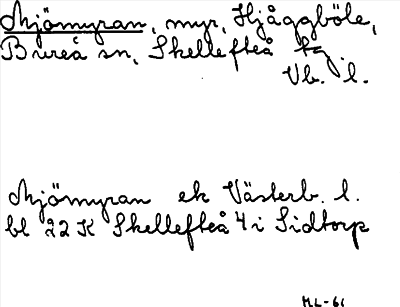 Mjömyran, myr, Hjåggböle,
Bureå sn, Skellefteå tg
Vb. l.
Mjömyran ek Västerb. l.
bl 22 K Skellefteå 4 i Sidtorp
ML-61